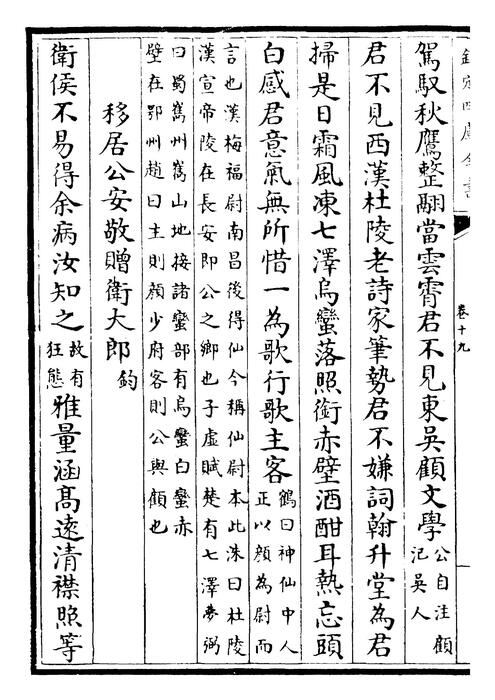 欽定四庫全書
卷十九
駕馭秋鷹整翮當雲霄君不見東吳顧文學公自注顧氾吳人
君不見西漢杜陵老詩家筆勢君不嫌詞翰升堂為君
掃是日霜風凍七澤烏蠻落照銜赤壁酒酣耳熱忘頭
白感君意氣無所惜一為歌行歌主客鶴曰神仙中人正以顔為尉而
言也漢梅福尉南昌後得仙今稱仙尉本此洙曰杜陵
漢宣帝陵在長安即公之鄉也子虛賦楚有七澤夢弼
曰蜀嶲州嶲山地接諸蠻部有烏蠻白蠻赤
壁在鄂州趙曰主則顔少府客則公與顧也
移居公安敬贈衛大郎鈞
衛侯不易得余病汝知之故有狂態雅量涵高逺清襟照等